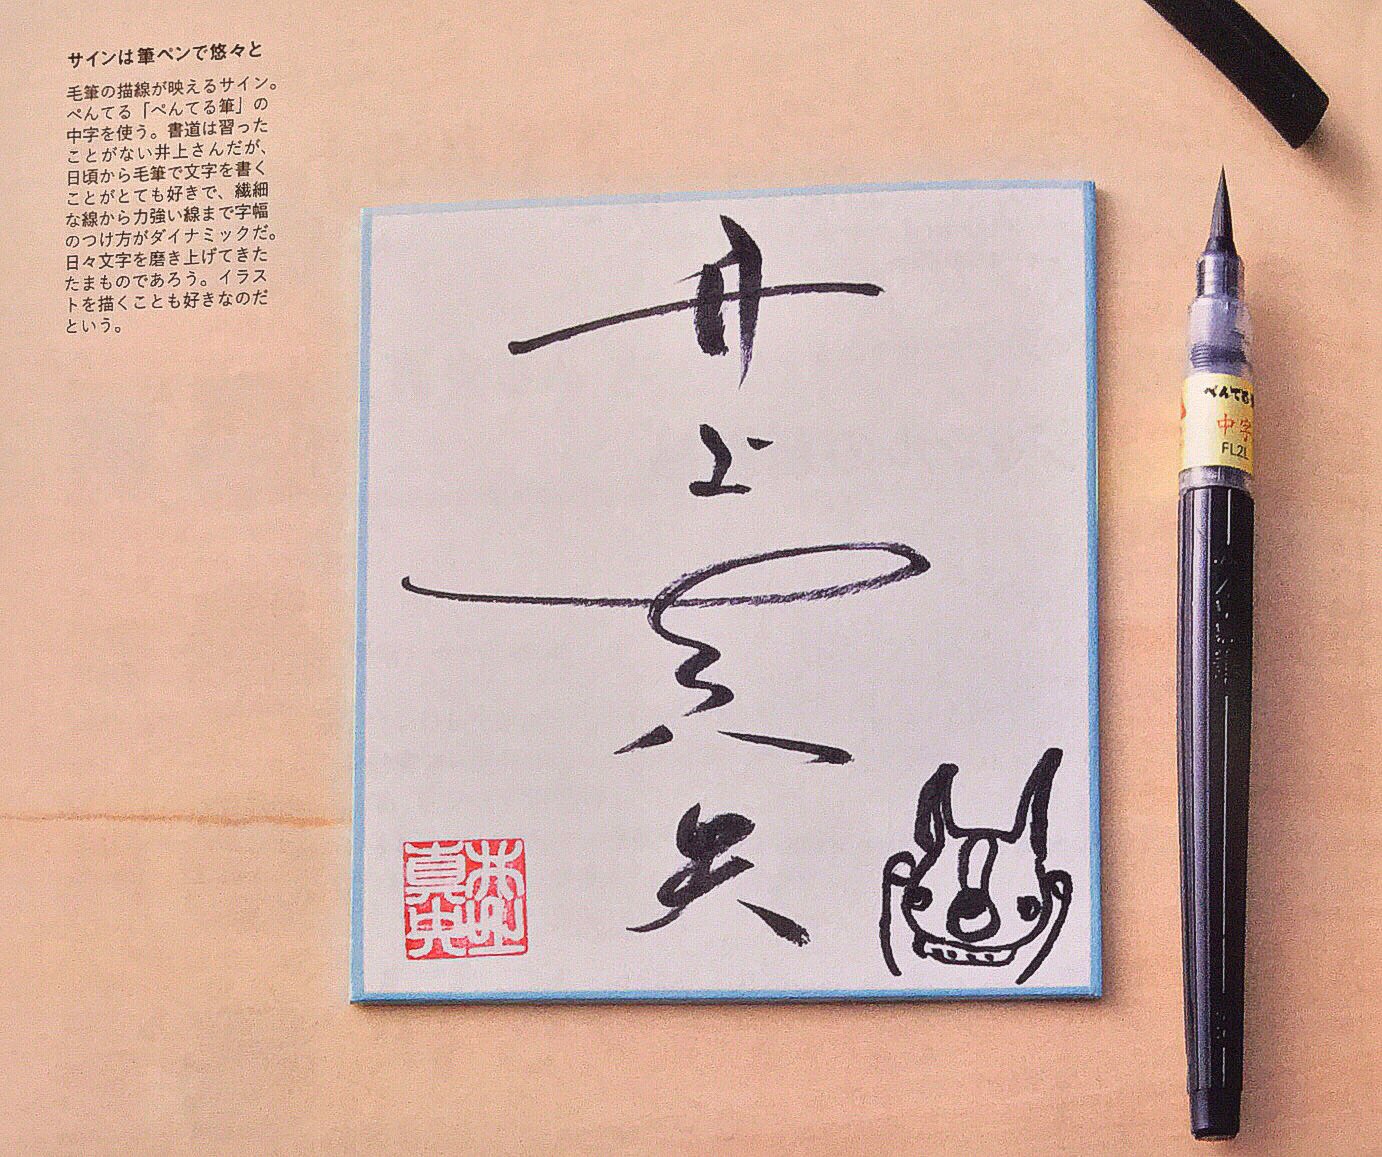 サインは筆ペンで悠々と
毛筆の描線が映えるサイン。
ぺんてる「ぺんてる筆」の
中字を使う。書道は習った
ことがない井上さんだが、
日頃から毛筆で文字を書く
ことがとても好きで、繊細
な線から力強い線まで字幅
のつけ方がダイナミックだ。
日々文字を磨き上げてきた
たまものであろう。イラス
トを描くことも好きなのだ
という。
井上真央
井上
真央
ぺんてる
中字
FL2L